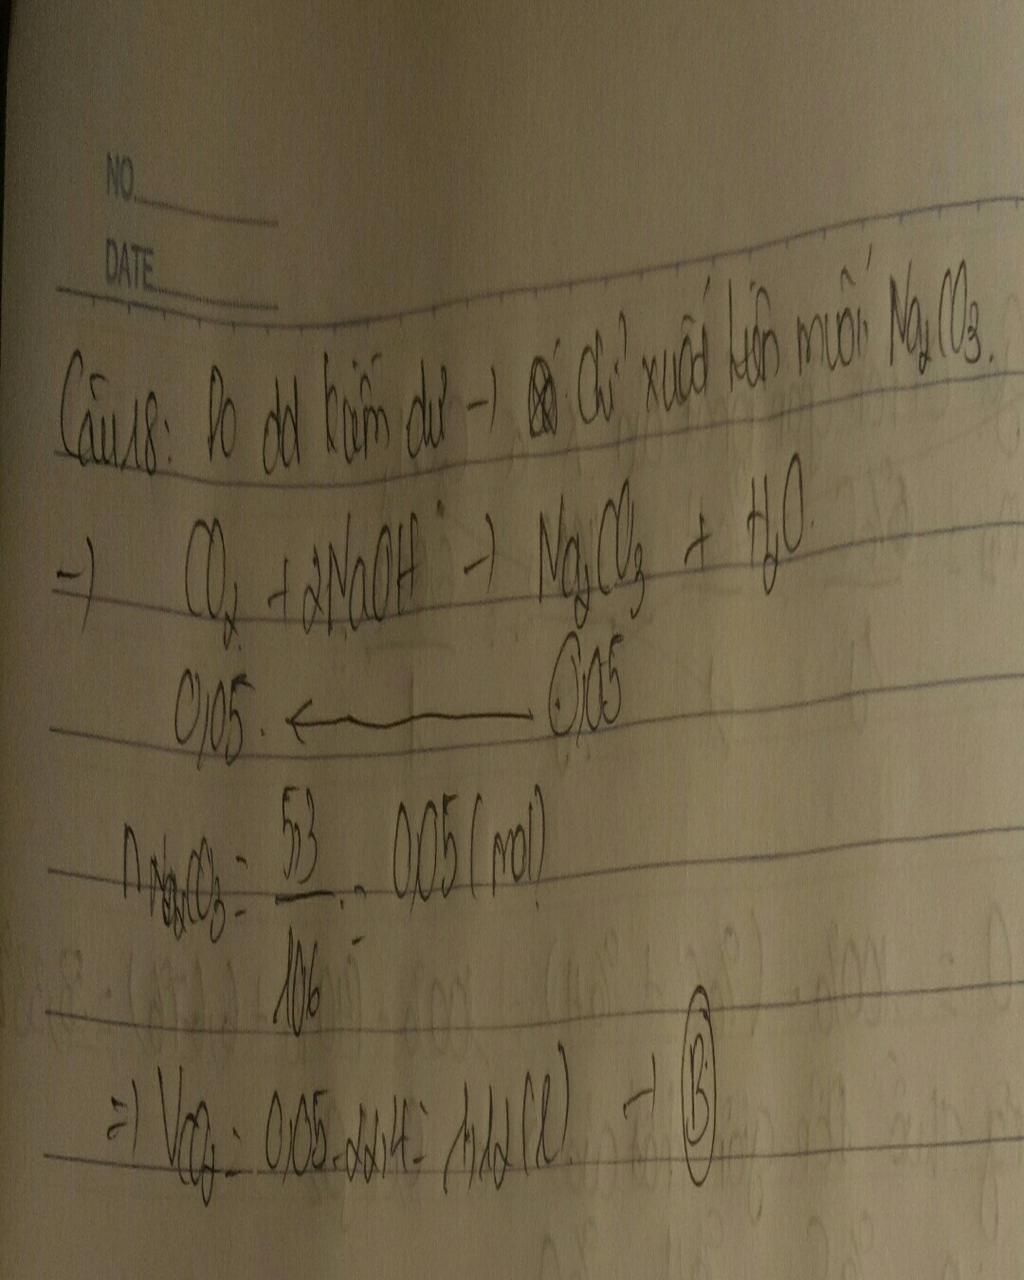 NO
DATE
Câu 18: Do dd kiềm dư → chỉ xuất hiện muối Na2CO3.
→ CO2 + 2NaOH → Na2CO3 + H2O.
0,05. ← 0,05
nNa2CO3 = 5,3/106 = 0,05 (mol)
⇒ VCO2 = 0,05.22,4 = 1,12 (l) → B